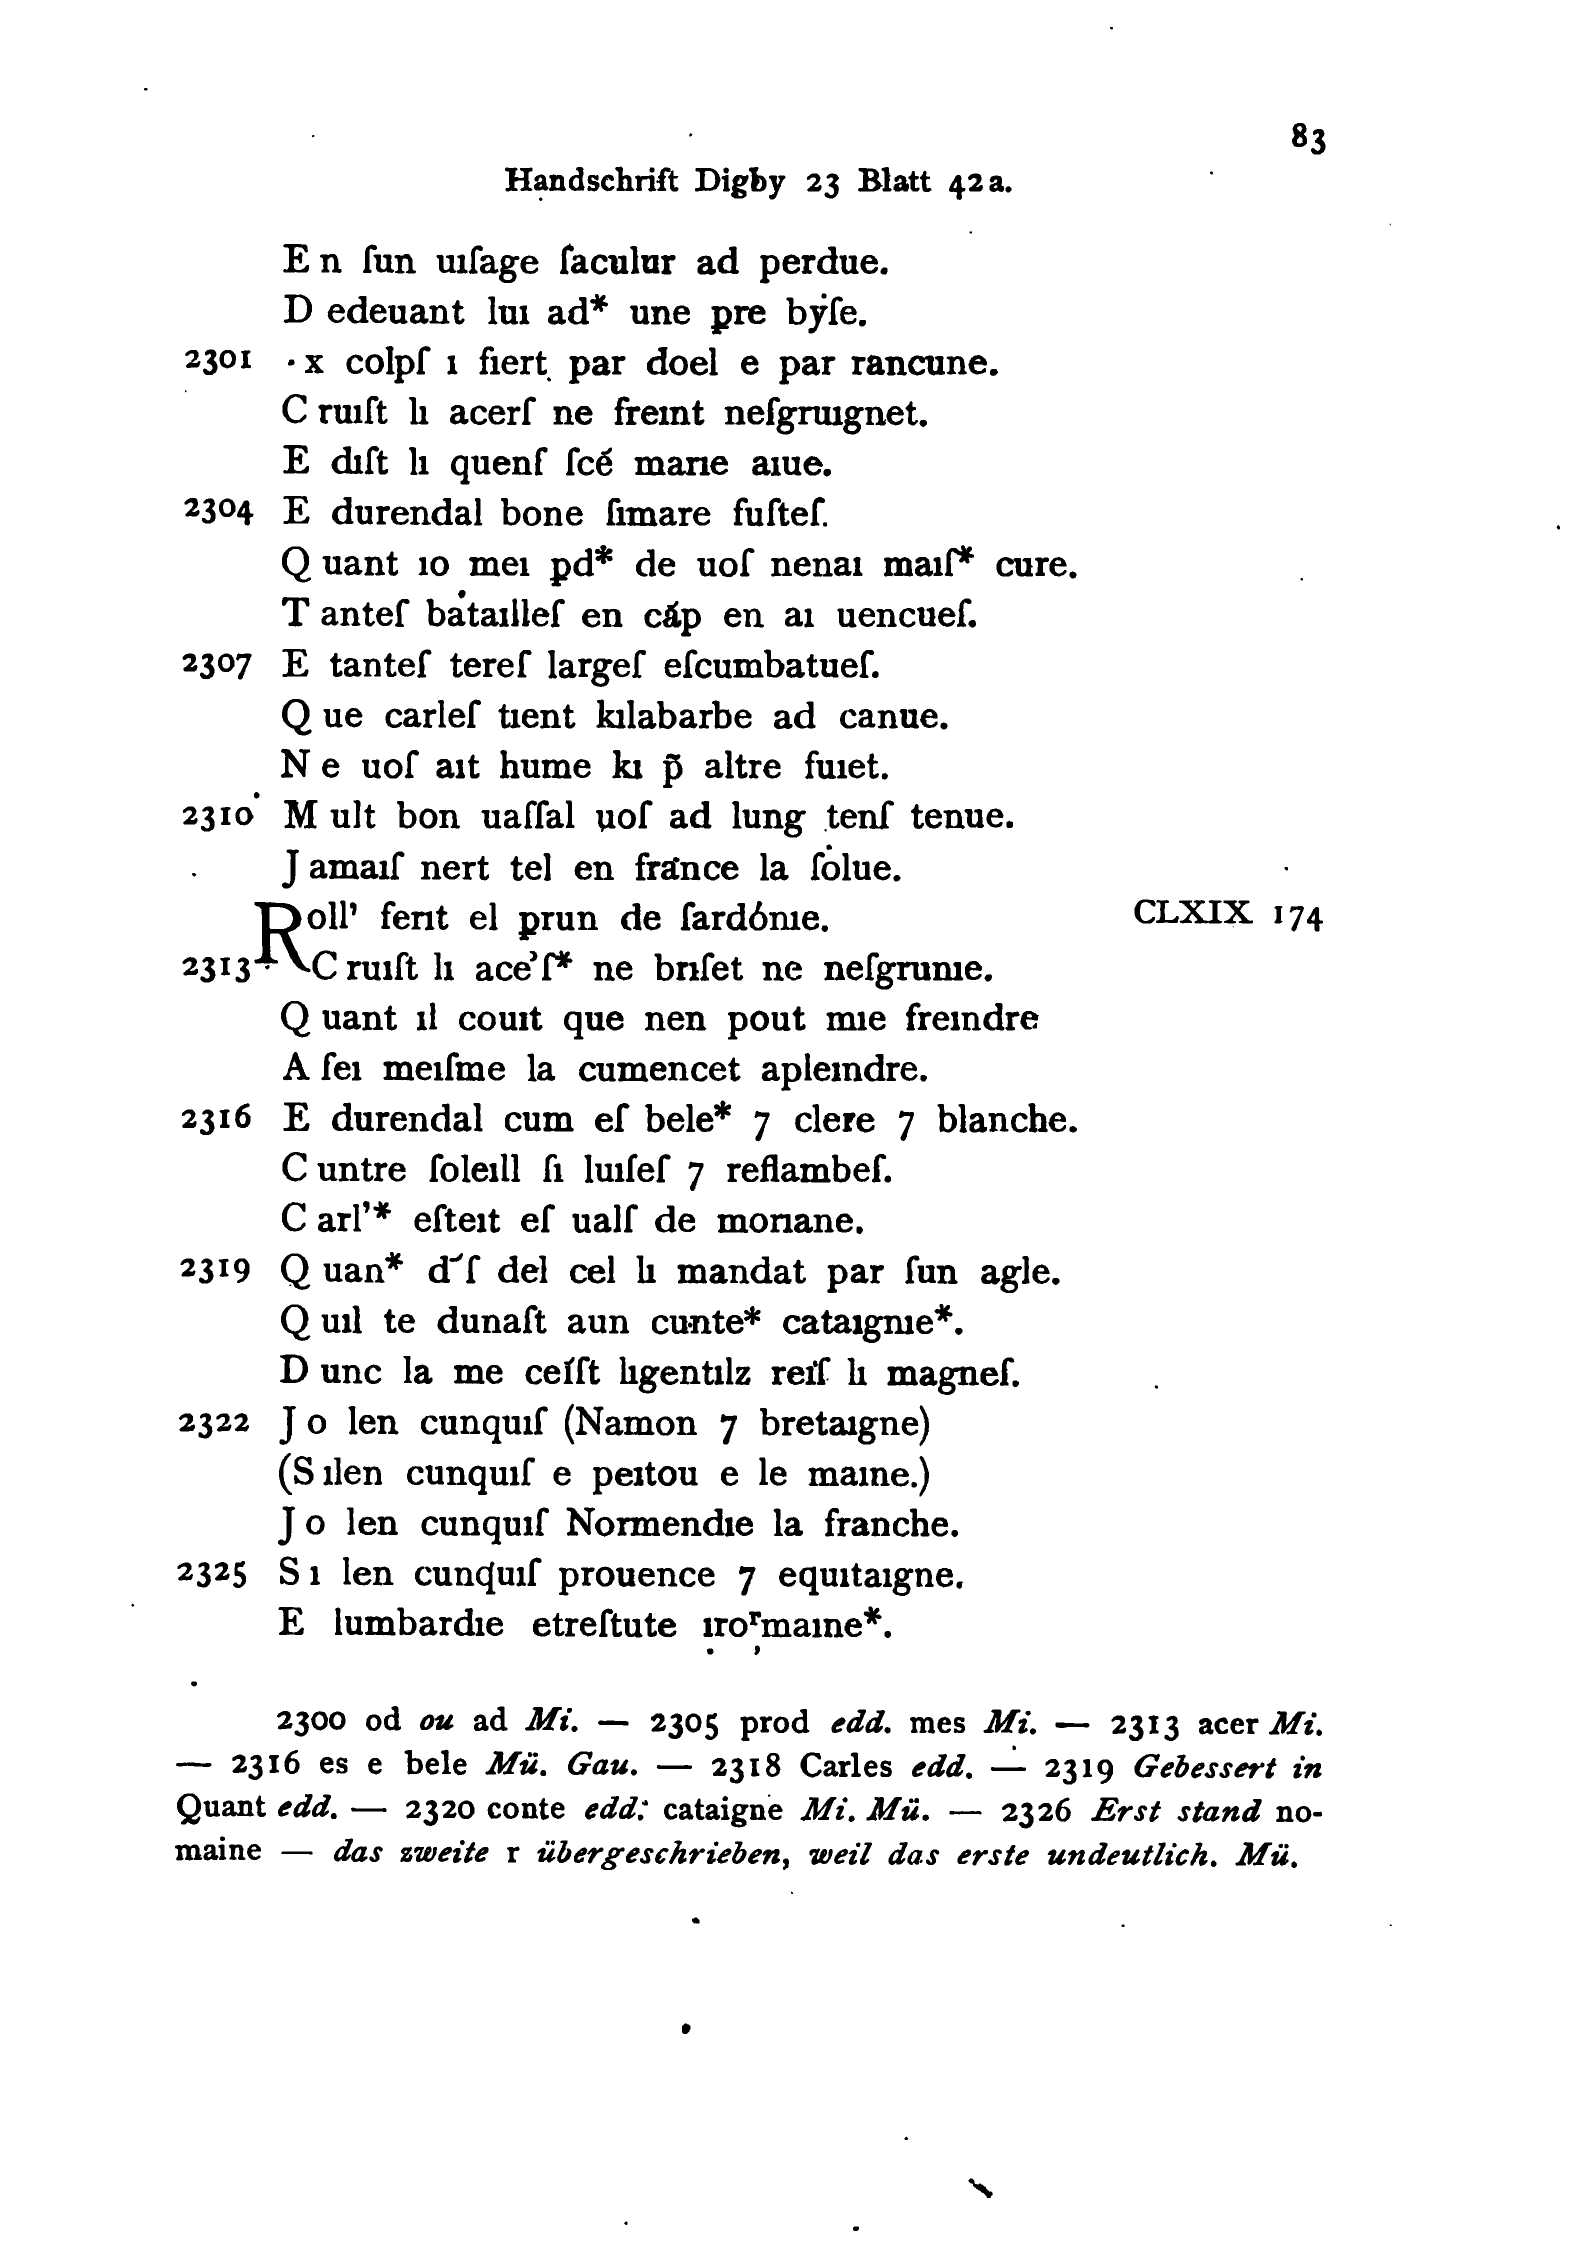 83
Handschrift Digby 23 Blatt 42a.
E n ſun uıſage ſaculur ad perdue.
D edeuant luı ad* une pre byſe.
2301 · x colpſ ı fiert par doel e par rancune.
C ruıſt lı acerſ ne freınt neſgruıgnet.
E dıſt lı quenſ ſcé marıe aıue.
2304 E durendal bone ſımare fuſteſ.
Q uant ıo meı pd* de uoſ nenaı maıſ* cure.
T anteſ bataılleſ en cãp en aı uencueſ.
2307 E tanteſ tereſ largeſ eſcumbatueſ.
Q ue carleſ tıent kılabarbe ad canue.
N e uoſ aıt hume kı p̃ altre fuıet.
2310 M ult bon uaſſal uoſ ad lung tenſ tenue.
J amaıſ nert tel en france la ſolue.
Roll' ferıt el prun de ſardónıe. CLXIX 174
2313 C ruıſt lı ace'ſ* ne brıſet ne neſgrunıe.
Q uant ıl couıt que nen pout mıe freındre
A ſeı meıſme la cumencet apleındre.
2316 E durendal cum eſ bele* 7 clere 7 blanche.
C untre ſoleıll ſı luıſeſ 7 reflambeſ.
C arl'* eſteıt eſ ualſ de morıane.
2319 Q uan* d˜ſ del cel lı mandat par ſun agle.
Q uıl te dunaſt aun cunte* cataıgnıe*.
D unc la me ceıſt lıgentılz reıſ lı magneſ.
2322 J o len cunquıſ (Namon 7 bretaıgne)
(S ılen cunquıſ e peıtou e le maıne.)
J o len cunquıſ Normendıe la franche.
2325 S ı len cunquıſ prouence 7 equıtaıgne.
E lumbardıe etreſtute ıroʳmaıne*.
2300 od ou ad Mi. — 2305 prod edd. mes Mi. — 2313 acer Mi.
— 2316 es e bele Mü. Gau. — 2318 Carles edd. — 2319 Gebessert in
Quant edd. — 2320 conte edd. cataigne Mi. Mü. — 2326 Erst stand no-
maine — das zweite r übergeschrieben, weil das erste undeutlich. Mü.